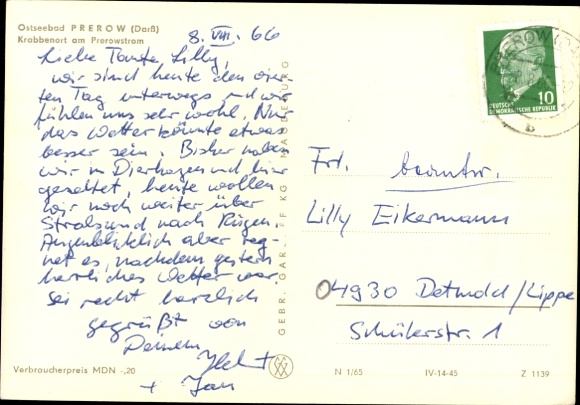 Ostseebad PREROW (Darß)
Krabbenort am Prerowstrom
8. VIII. 66
Liebe Tante Lilly,
wir sind heute den vier-
ten Tag unterwegs und wir
fühlen uns sehr wohl. Nur
das Wetter könnte etwas
besser sein. Bisher haben
wir in Dierhagen und hier
gezeltet, heute wollen
wir noch weiter über
Stralsund nach Rügen.
Augenblicklich aber reg-
net es, nachdem gestern
herrliches Wetter war.
Sei recht herzlich
gegrüßt von
Deinem
+ Jan
Verbraucherpreis MDN -,20
GEBR. GARLOFF KG MAGDEBURG
DEUTSCHE
DEMOKRATISCHE REPUBLIK
10
PREROW
b
Frl. beantw.
Lilly Eikermann
04930 Detmold/Lippe
Schülerstr. 1
N 1/65 IV-14-45 Z 1139